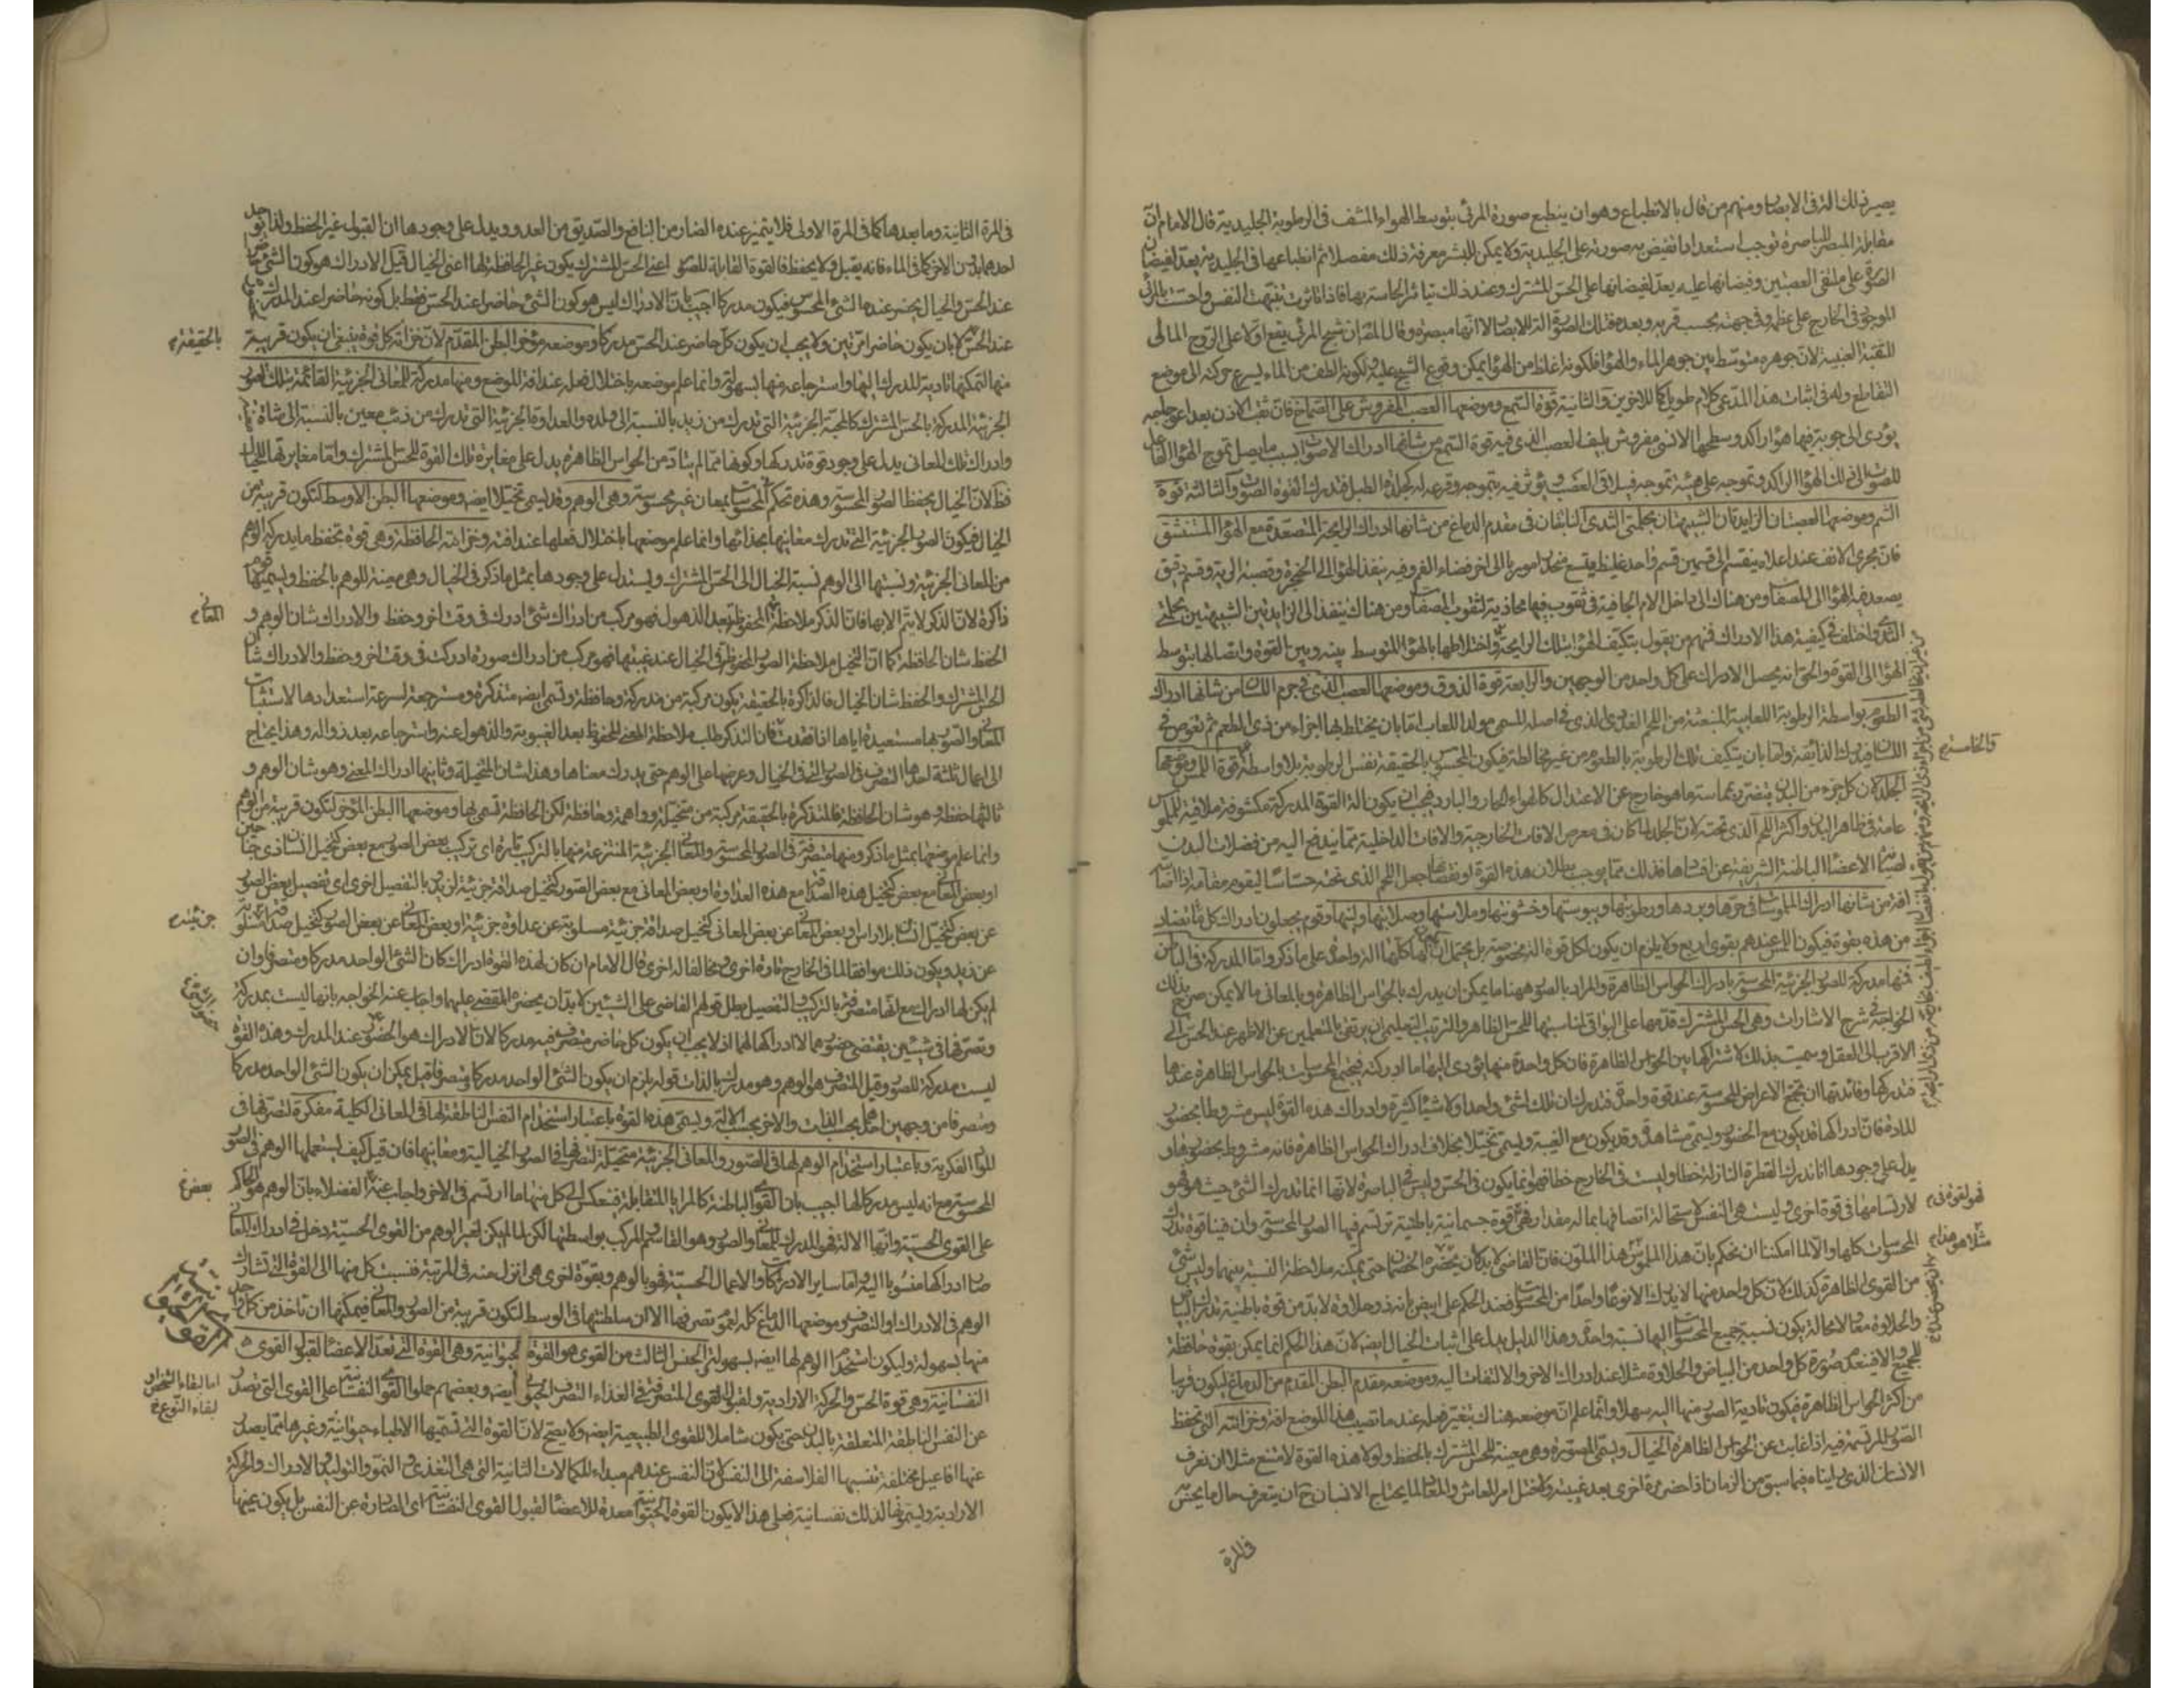 يصير ذلك اثر فى الابصار ومنهم من قال بالانطباع وهو ان ينطبع صورة المرئى بتوسط الهواء المشف فى الرطوبة الجليدية قال الامام ان
مقابلة المبصر للباصرة توجب استعدادا تفيض به صورته على الجليدية ولا يمكن للبشر معرفة ذلك مفصلا ثم انطباعها فى الجليدية يعد لفيضان
الصورة على ملتقى العصبتين وفيضانها عليه يعد لفيضانها على الحس المشترك وعند ذلك يتأثر الحاسة بها فاذا تأثرت تنبهت النفس واحست بالمرئى
الموجود فى الخارج على عظمه وفى جهته بحسب قربه وبعده فتلك الصورة آلة للابصار لا انها مبصرة وقال شبح المرئى يقع اولا على الروح المالى
للثقبة العنبية لان جوهره متوسط بين جوهر الماء والهواء فلكونه اغلظ من الهواء يمكن وقوع الشبح عليه ولكونه الطف من الماء يسرع حركته الى موضع
التقاطع وله فى اثبات هذا المدعى كلام طويل كما للاخرين والثانية قوة السمع وموضعها العصب المفروش على الصماخ فان ثقب الاذن بعد اعوجاجه
يؤدى الى جوبة فيها هواء راكد وسطحها الانسى مفروش بليف العصب الذى فيه قوة السمع من شانها ادراك الاصوات بسبب ما يصل تموج الهواء الفاعل
للصوت الى ذلك الهواء الراكد وتموجه على هيئة تموجه فيلاقى العصب ويؤثر فيه بتموجه وقرعه له كجلدة الطبل فتدرك القوة الصوت والثالثة قوة
الشم وموضعها العصبتان الزايدتان الشبيهتان بحلمتى الثدى النابتتان فى مقدم الدماغ من شانها ادراك الرايحة المتصعدة مع الهواء المستنشق
فان مجرى الانف عند اعلاه ينقسم الى قسمين قسم واحد غليظ متسع الى اخر فضاء الفم وفيه ينفذ الهواء الى الحنجرة وقصبة الرية وقسم دقيق
يصعد فيه الهواء الى المصفاة ومن هناك الى داخل الام الجافية فى ثقوب فيها محاذية لثقوب المصفاة ومن هناك ينفذ الى الزايدتين الشبيهتين بحلمتى
الثدى واختلف فى كيفية هذا الادراك فمنهم من يقول بتكيف الهواء بتلك الرايحة واختلاطها بالهواء المتوسط بينه وبين القوة واتصالها بتوسط
الهواء الى القوة والحق انه يحصل الادراك على كل واحد من الوجهين والرابعة قوة الذوق وموضعها العصب الذى فى جرم اللسان من شانها ادراك
الطعوم بواسطة الرطوبة اللعابية المنبعثة من اللحم الغددى الذى فى اصله المسمى مولد اللعاب اما بان يختلط بها اجزاء من ذى الطعم ثم تغوص فى
اللسان فيدرك الذائقة واما بان يتكيف تلك الرطوبة بالطعوم من غير مخالطة فيكون المحسوس بالحقيقة نفس الرطوبة بلا واسطة قوة اللمس وموضعها
والخامسة
الجلد لان كل جزء من البدن يتضرر بمماسة ما هو خارج عن الاعتدال كالهواء الحار والبارد فيجب ان يكون آلة القوة المدركة مكشوفة ملاقية للملموس
عامة فى ظاهر البدن واكثر اللحم الذى تحته لان الجلد لما كان فى معرض الافات الخارجية والافات الداخلية مما يندفع اليه من فضلات البدن
لصيانة الاعضاء الباطنة الشريفة عن افشاها فذلك مما يوجب بطلان هذه القوة او نقصانها جعل اللحم الذى تحته حساسا ليقوم مقامه اذا اصابه
آفة من شانها ادراك الملموسات فى حرها وبردها ورطوبتها ويبوستها وخشونتها وملاستها وصلابتها ولينها وقوم يجعلون ادراك كل متضاد
من هذه بقوة فيكون اللمس عندهم بقوى اربع ولا يلزم ان يكون لكل قوة آلة مخصوصة بل يحتمل ان يكون لكلها آلة واحدة على ما ذكر واما المدركة فى الباطن
فمنها مدركة للصور الجزئية المحسوسة بادراك الحواس الظاهرة والمراد بالصور ههنا ما يمكن ان يدرك بالحواس الظاهرة وبالمعانى ما لا يمكن صرح بذلك
الخواجة فى شرح الاشارات وهى الحس المشترك قدمها على البواقى لمناسبتها للحس الظاهر والترتيب التعليمى ان يرتقى بالمتعلمين عن الاظهر عند الحس الى
الاقرب الى العقل وسميت بذلك لاشتراكها بين الحواس الظاهرة فان كل واحدة منها يؤدى اليها ما ادركته فيجتمع المحسوسات بالحواس الظاهرة عندها
فتدركها وفائدتها ان تجمع الاعراض المحسوسة عند قوة واحدة فتدرك ان تلك لشئ واحد او لاشياء كثيرة وادراك هذه القوة ليس مشروطا بحضور
المادة فان ادراكها قد يكون مع الحضور ويسمى مشاهدة وقد يكون مع الغيبة ويسمى تخيلا بخلاف ادراك الحواس الظاهرة فانه مشروط بحضورها و
يدل على وجودها انا ندرك القطرة النازلة خطا وليست فى الخارج خطا فهو انما يكون فى الحس وليس فى الباصرة لانها انما تدرك الشئ حيث هو فهو
لارتسامها فى قوة اخرى وليست هى النفس لاستحالة اتصافها بما له مقدار فهى قوة جسمانية باطنية ترتسم فيها الصور المحسوسة وان فينا قوة تدرك
المحسوسات كلها والا لما امكننا ان نحكم بان هذا الملموس هو هذا الملون فان القاضى لا بد ان يحضره الخصمان حتى يمكنه ملاحظة النسبة بينهما وليس شئ
من القوى الظاهرة كذلك لان كل واحد منها لا يدرك الا نوعا واحدا من المحسوسات فعند الحكم على ابيض بانه ذو حلاوة لا بد من قوة باطنية تدرك البياض
والحلاوة معا لا محالة يكون نسبة جميع المحسوسات اليها نسبة واحدة وهذا الدليل يدل على اثبات الخيال ايضا لان هذا الحكم انما يمكن بقوة حافظة
للجميع والا فينعدم صورة كل واحد من البياض والحلاوة مثلا عند ادراك الاخر والالتفات اليه وموضعه مقدم البطن المقدم من الدماغ ليكون قريبا
من اكثر الحواس الظاهرة فيكون تادية الصور منها اليه سهلا وانما علم ان موضعه هناك بتغير فعله عند ما تصيب هذا الموضع آفة وخزانته التى تحفظ
الصور المرتسمة فيه اذا غابت عن الحواس الظاهرة الخيال ويسمى المصورة وهى معينة للحس المشترك بالحفظ ولولا هذه القوة لامتنع مثلا ان نعرف
الانسان الذى رايناه فيما سبق من الزمان اذا حضر مرة اخرى بعد غيبته ولاختل امر المعاش والمعاد لما يحتاج الانسان ح ان يتعرف حال ما يحس
فى المرة
فى المرة الثانية وما بعدها كما فى المرة الاولى فلا يتميز عنده الضار من النافع والصديق من العدو ويدل على وجودها ان القبول غير الحفظ ولذا يوجد
احدهما بدون الاخر كما فى الماء فانه يقبل ولا يحفظ فالقوة القابلة للصور اعنى الحس المشترك يكون غير الحافظة لها اعنى الخيال قيل الادراك هو كون الشئ حاضرا
عند الحس والخيال يحضر عنده الشئ المحسوس فيكون مدركا اجيب بان الادراك ليس هو كون الشئ حاضرا عند الحس فقط بل كونه حاضرا عند المدرك
عند الحس لا بان يكون حاضرا مرتين ولا يجب ان يكون كل حاضر عند الحس مدركا وموضعه مؤخر البطن المقدم لان خزانة كل قوة ينبغى ان يكون قريبة
بالحقيقة
منها لتمكنها تادية المدركات اليها واسترجاعه منها بسهولة وانما علم موضعه باختلال فعله عند آفة الموضع ومنها مدركة للمعانى الجزئية القائمة بتلك الصور
الجزئية المدركة بالحس المشترك كالمحبة الجزئية التى تدرك من زيد بالنسبة الى ولده والعداوة الجزئية التى تدرك من ذئب معين بالنسبة الى شاة
وادراك تلك المعانى يدل على وجود قوة تدركها وكونها مما لم يتأد من الحواس الظاهرة يدل على مغايرة تلك القوة للحس المشترك واما مغايرتها للخيال
فلان الخيال يحفظ الصور المحسوسة وهذه تحكم على المحسوسات بمعان غير محسوسة وهى الوهم وقد يسمى تخيلا ايضا وموضعها البطن الاوسط لتكون قريبة من
الخيال فيكون الصور الجزئية التى تدرك معانيها بحذائها وانما علم موضعها باختلال فعلها عند آفته وخزانته الحافظة وهى قوة تحفظ ما يدركه الوهم
من المعانى الجزئية ونسبتها الى الوهم نسبة الخيال الى الحس المشترك ويستدل على وجودها بمثل ما ذكر فى الخيال وهى معينة للوهم بالحفظ ويسميها قوم
ذاكرة لان الذكر لا يتم الا بها فان الذكر ملاحظة المحفوظة بعد الذهول فهو مركب من ادراك شئ ادرك فى وقت اخر وحفظ والادراك شان الوهم و
المعانى
الحفظ شان الحافظة كما ان التخيل ملاحظة الصور المحفوظة فى الخيال عند غيبتها فهو مركب من ادراك صورة ادركت فى وقت اخر وحفظ والادراك شان
الحس المشترك والحفظ شان الخيال فالذاكرة بالحقيقة يكون مركبة من مدركة وحافظة وتسمى ايضا متذكرة ومسترجعة لسرعة استعدادها لاستثبات
المعانى والتصور بها مستعيدة اياها اذا فقدت فان التذكر طلب ملاحظة المعنى المحفوظ بعد الغيبوبة والذهول عنه واسترجاعه بعد زواله وهذا يحتاج
الى اعمال ثلثة احدها التصرف فى الصور التى فى الخيال وعرضها على الوهم حتى يدرك معناها وهذا شان المتخيلة وثانيها ادراك المعنى وهو شان الوهم و
ثالثها حفظه وهو شان الحافظة فالمتذكرة بالحقيقة مركبة من متخيلة وواهمة وحافظة لكن الحافظة تسمى بها وموضعها البطن المؤخر لتكون قريبة من الوهم
وانما علم موضعها بمثل ما ذكر ومنها متصرفة فى الصور المحسوسة والمعانى الجزئية المنتزعة منها بالتركيب تارة اى تركيب بعض الصور مع بعض كتخيل انسان ذى جناحين
او بعض المعانى مع بعض كتخيل هذه الصداقة مع هذه العداوة او بعض المعانى مع بعض الصور كتخيل صداقة جزئية لزيد بالتفصيل اخرى اى تفصيل بعض الصور
عن بعض كتخيل انسان بلا راس او بعض المعانى عن بعض المعانى كتخيل صداقة جزئية مسلوبة عن عداوة جزئية او بعض المعانى عن بعض الصور كتخيل صداقة جزئية مسلوبة
جزئية
عن زيد ويكون ذلك موافقا لما فى الخارج تارة اخرى ومخالفا له اخرى قال الامام ان كان لهذه القوة ادراك كان الشئ الواحد مدركا ومتصرفا وان
لم يكن لها ادراك مع انها متصرفة بالتركيب والتفصيل بطل قولهم القاضى على الشيئين لا بد ان يحضره المقضى عليهما واجاب عنه الخواجة بانها ليست بمدركة
وتصرفها فى شيئين يقتضى حضورهما لا ادراكهما اذ لا يجب ان يكون كل حاضر متصرف فيه مدركا لان الادراك هو الحضور عند المدرك وهذه القوة
ليست مدركة للصور وقيل المتصرف هو الوهم وهو مدرك بالذات قوله يلزم ان يكون الشئ الواحد مدركا ومتصرفا قيل يمكن ان يكون الشئ الواحد مدركا
ومتصرفا من وجهين احدهما بحسب الذات والاخر بحسب الآلة ويسمى هذه القوة باعتبار استخدام النفس الناطقة لها فى المعانى الكلية مفكرة لتصرفها فى
المواد الفكرية وباعتبار استخدام الوهم لها فى الصور والمعانى الجزئية متخيلة لتصرفها فى الصور الخيالية ومعانيها فان قيل كيف يستعملها الوهم فى الصور
المحسوسة مع انه ليس مدركا لها اجيب بان القوى الباطنة كالمرايا المتقابلة فينعكس الى كل منها ما ارتسم فى الاخر واجاب عنه الفضلاء بان الوهم هو الحاكم
بعض
على القوى الحسية وانها آلالة فهو المدرك للمعانى والصور وهو القاسم المركب بواسطتها لكن لما لم يكن لغير الوهم من القوى الحسية دخل فى ادراك المعانى
صار ادراكها منسوبا اليه اما ساير الادراكات والاعمال الحسية فهو بالوهم وبقوة اخرى هى انزل منه فى المرتبة فنسبت كل منها الى القوة التى تشارك
الوهم فى الادراك او التصرف وموضعها الدماغ كله لعموم تصرفها الا ان سلطنتها فى الوسط لتكون قريبة من الصور والمعانى فيمكنها ان تاخذ من كل واحد
منها بسهولة وليكون استخدام الوهم لها ايضا بسهولة الجنس الثالث من القوى هو القوة الحيوانية وهى القوة التى تعد الاعضاء لقبول القوى
النفسانية وهى قوة الحس والحركة الارادية ولقبول القوى المتصرفة فى الغذاء التصرف الحيوانى ايضا وبعضهم حملوا القوى النفسانية على القوى التى تصدر
اما لبقاء الشخص او
لبقاء النوع
عن النفس الناطقة المتعلقة بالبدن حتى يكون شاملا للقوى الطبيعية ايضا ولا يصح لان القوة التى تسميها الاطباء حيوانية وغيرها مما يصدر
عنها افاعيل مختلفة تنسبها الفلاسفة الى النفس لان النفس عندهم مبداء للكمالات الثانية التى هى التغذى والنمو والتوليد والادراك والحركة
الارادية ويسمونها لذلك نفسانية فعلى هذا لا يكون القوة الحيوانية معدة للاعضاء لقبول القوى النفسانية اى الصادرة عن النفس بل يكون عينها